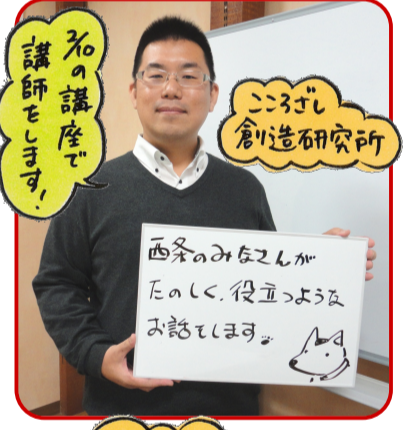 2/10の講座で
講師をします!
こころざし
創造研究所
西条のみなさんが
たのしく、役立つような
お話をします。